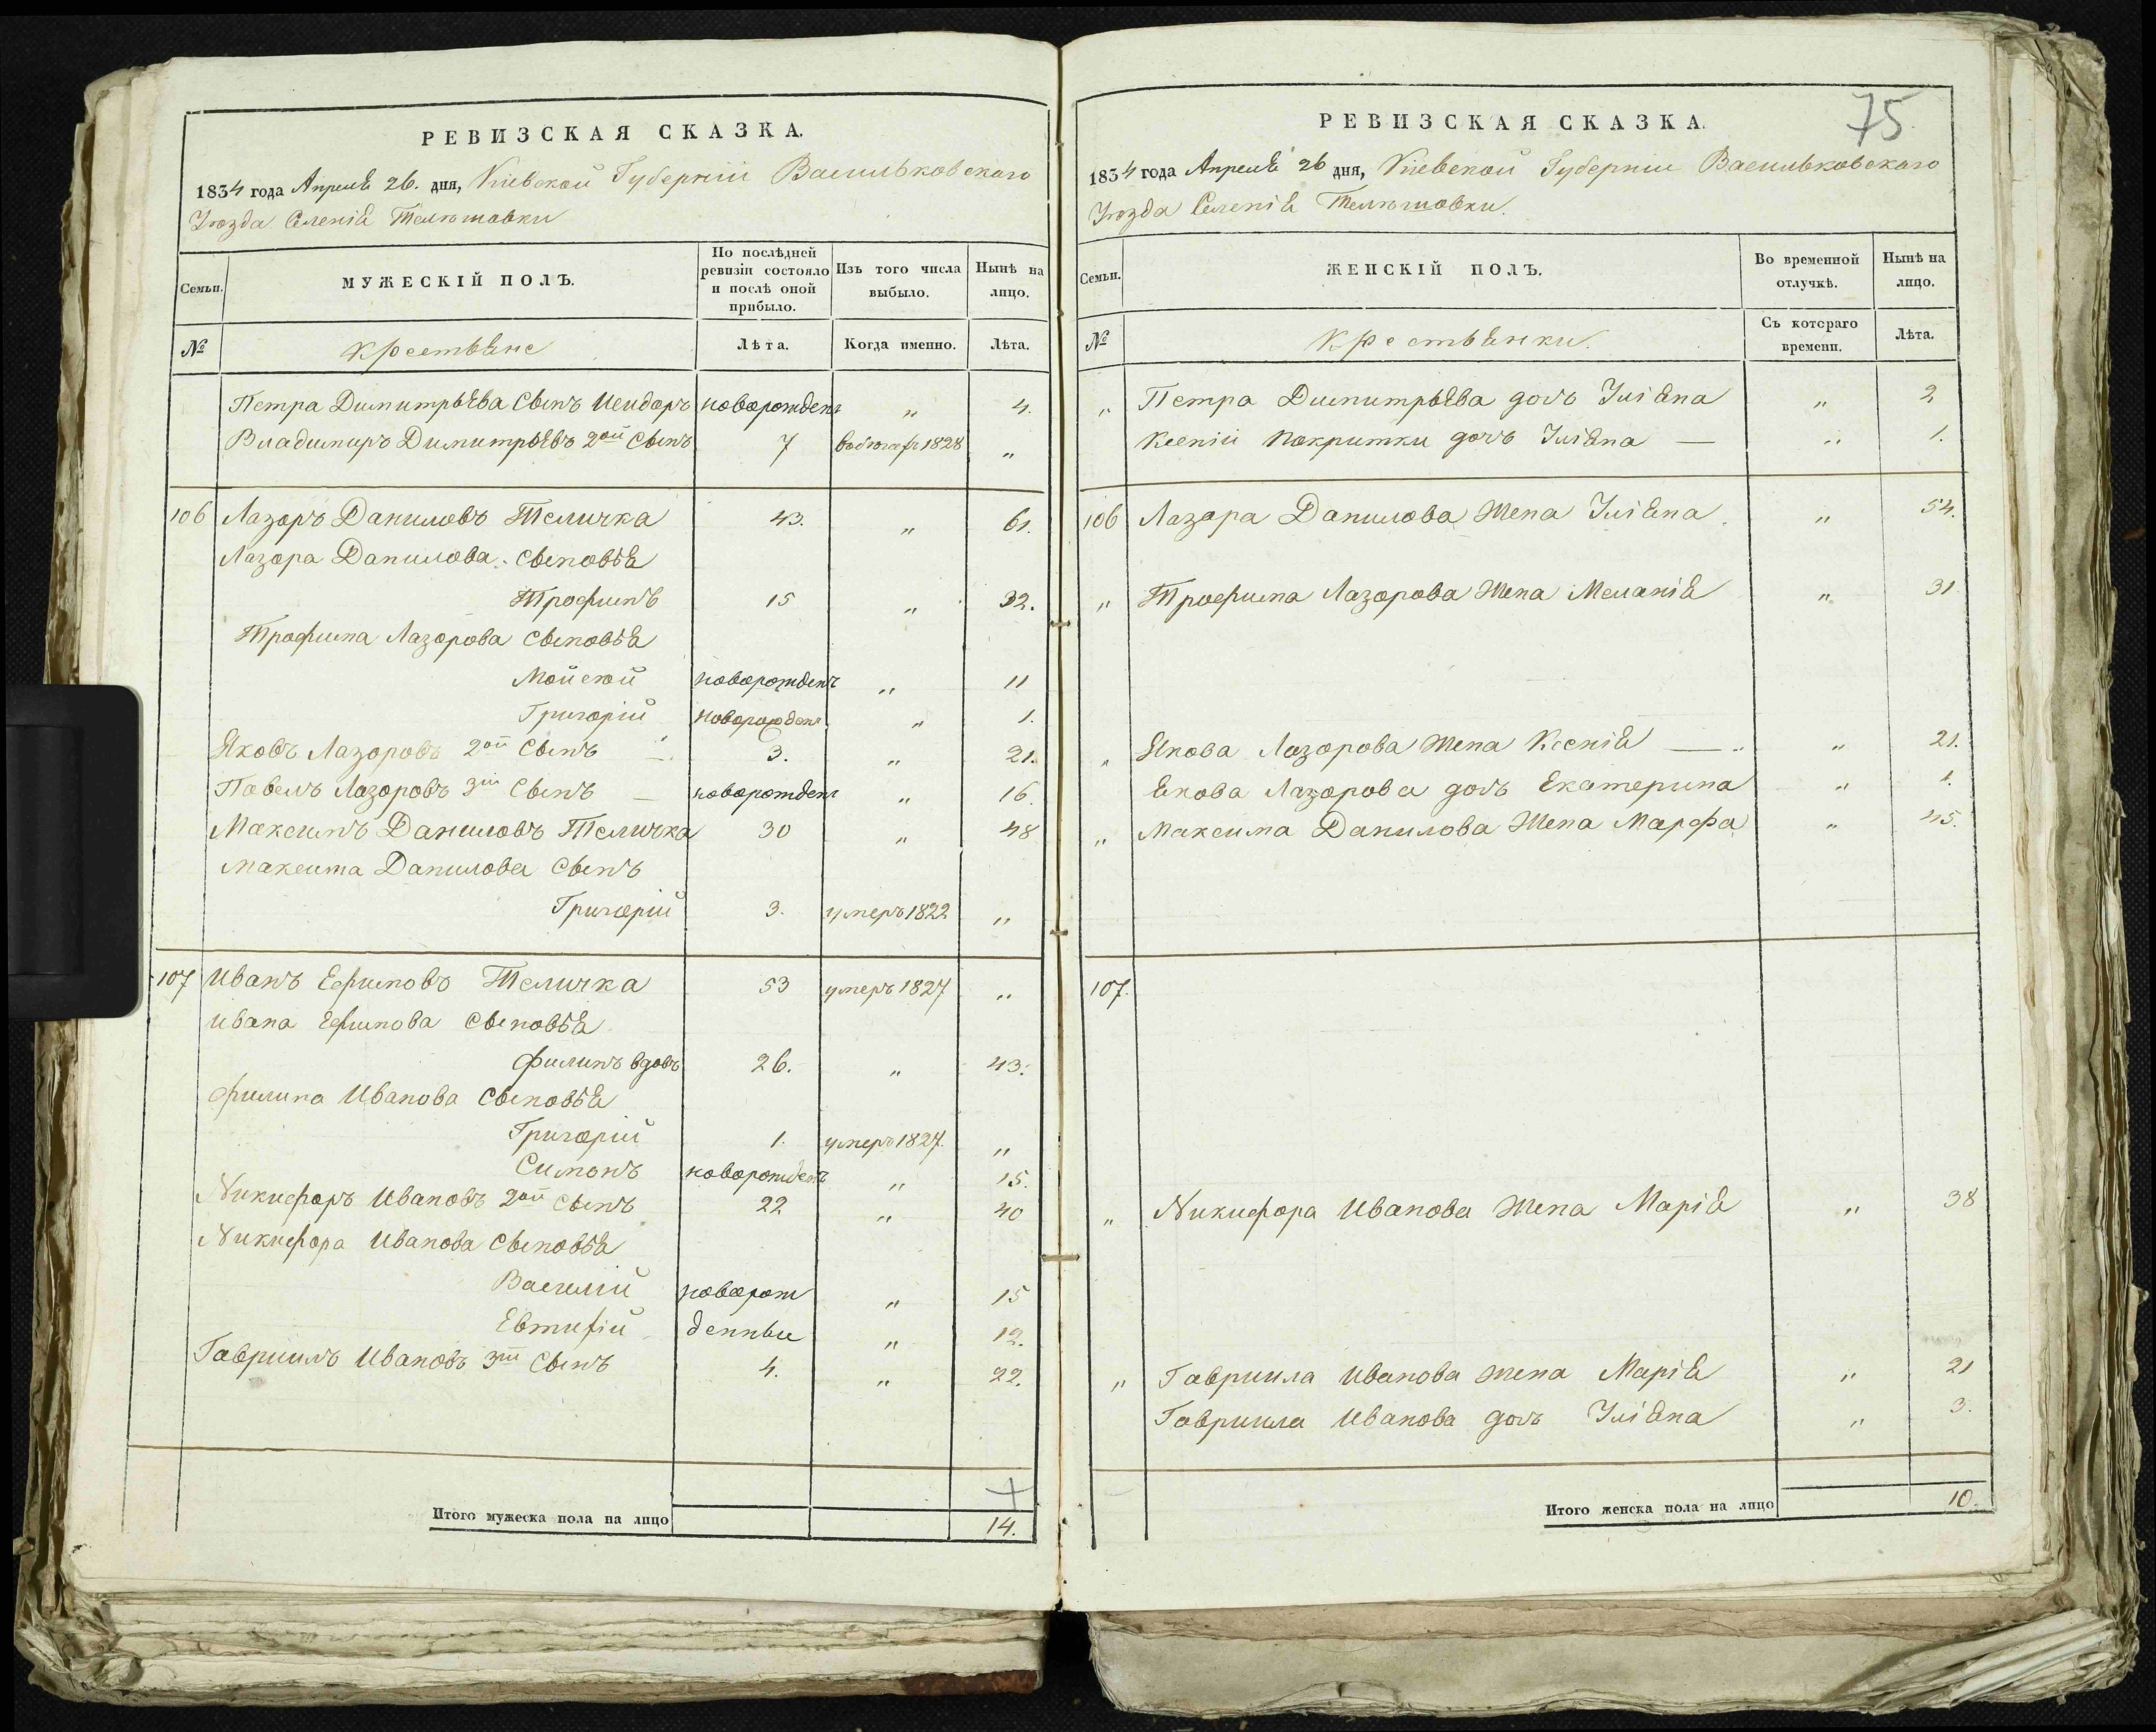 РЕВИЗСКАЯ СКАЗКА.
1834 года Апреля 26. дня, Кіевской Губерніи Васильковскаго
Уѣзда Селенія Телѣшовки
Семьи.
МУЖЕСКІЙ ПОЛЪ.
По послѣдней ревизіи состояло и послѣ оной прибыло.
Изъ того числа выбыло.
Нынѣ на лицо.
№
крестьяне
Лѣта.
Когда именно.
Лѣта.
Петра Димитрыева сынъ Исидоръ новорожденъ „ 4.
Владимиръ Димитрыевъ 2ой сынъ 7 1828 „
106 Лазоръ Даниловъ Теличка 43. „ 61.
Лазора Данилова сыновья
Трофимъ 15 „ 32.
Трофима Лазорова сыновья
Мойсей новорожденъ „ 11
Григорій новорожденъ „ 1.
Яковъ Лазоровъ 2ой сынъ 3. „ 21.
Павелъ Лазоровъ 3ій сынъ — новорожденъ „ 16.
Максимъ Даниловъ Теличка 30 „ 48
Максима Данилова сынъ
Григорій 3. умеръ 1822 „
107 Иванъ Ефимовъ Теличка 53 умеръ 1827 „
Ивана Ефимова сыновья
Филипъ вдовъ 26. „ 43.
Филипа Иванова сыновья
Григорій 1. умеръ 1827. „
Симонъ новорожденъ „ 15.
Никифоръ Ивановъ 2ой сынъ 22 „ 40
Никифора Иванова сыновья
Василій новорож „ 15
Евтифій денныи „ 12.
Гавриилъ Ивановъ 3ій сынъ 4. „ 22.
Итого мужеска пола на лицо 14.
75
РЕВИЗСКАЯ СКАЗКА.
1834 года Апреля 26 дня, Кіевской Губерніи Васильковскаго
Уѣзда Селенія Телѣшовки.
Семьи.
ЖЕНСКІЙ ПОЛЪ.
Во временной отлучкѣ.
Нынѣ на лицо.
№
крестьянки.
Съ котораго времени.
Лѣта.
„ Петра Димитрыева дочь Іуліяна „ 2
Ксеніи Покритки дочь Іуліяна — „ 1.
106 Лазора Данилова жена Іуліяна. „ 54.
„ Трофима Лазорова жена Меланія „ 31
„ Якова Лазорова жена Ксенія — „ 21.
Якова Лазорова дочь Екатерина „ 1.
„ Максима Данилова жена Марфа „ 45.
107.
„ Никифора Иванова жена Марія „ 38
„ Гавриила Иванова жена Марія „ 21
Гавриила Иванова дочь Іуліяна „ 3.
Итого женска пола на лицо 10.